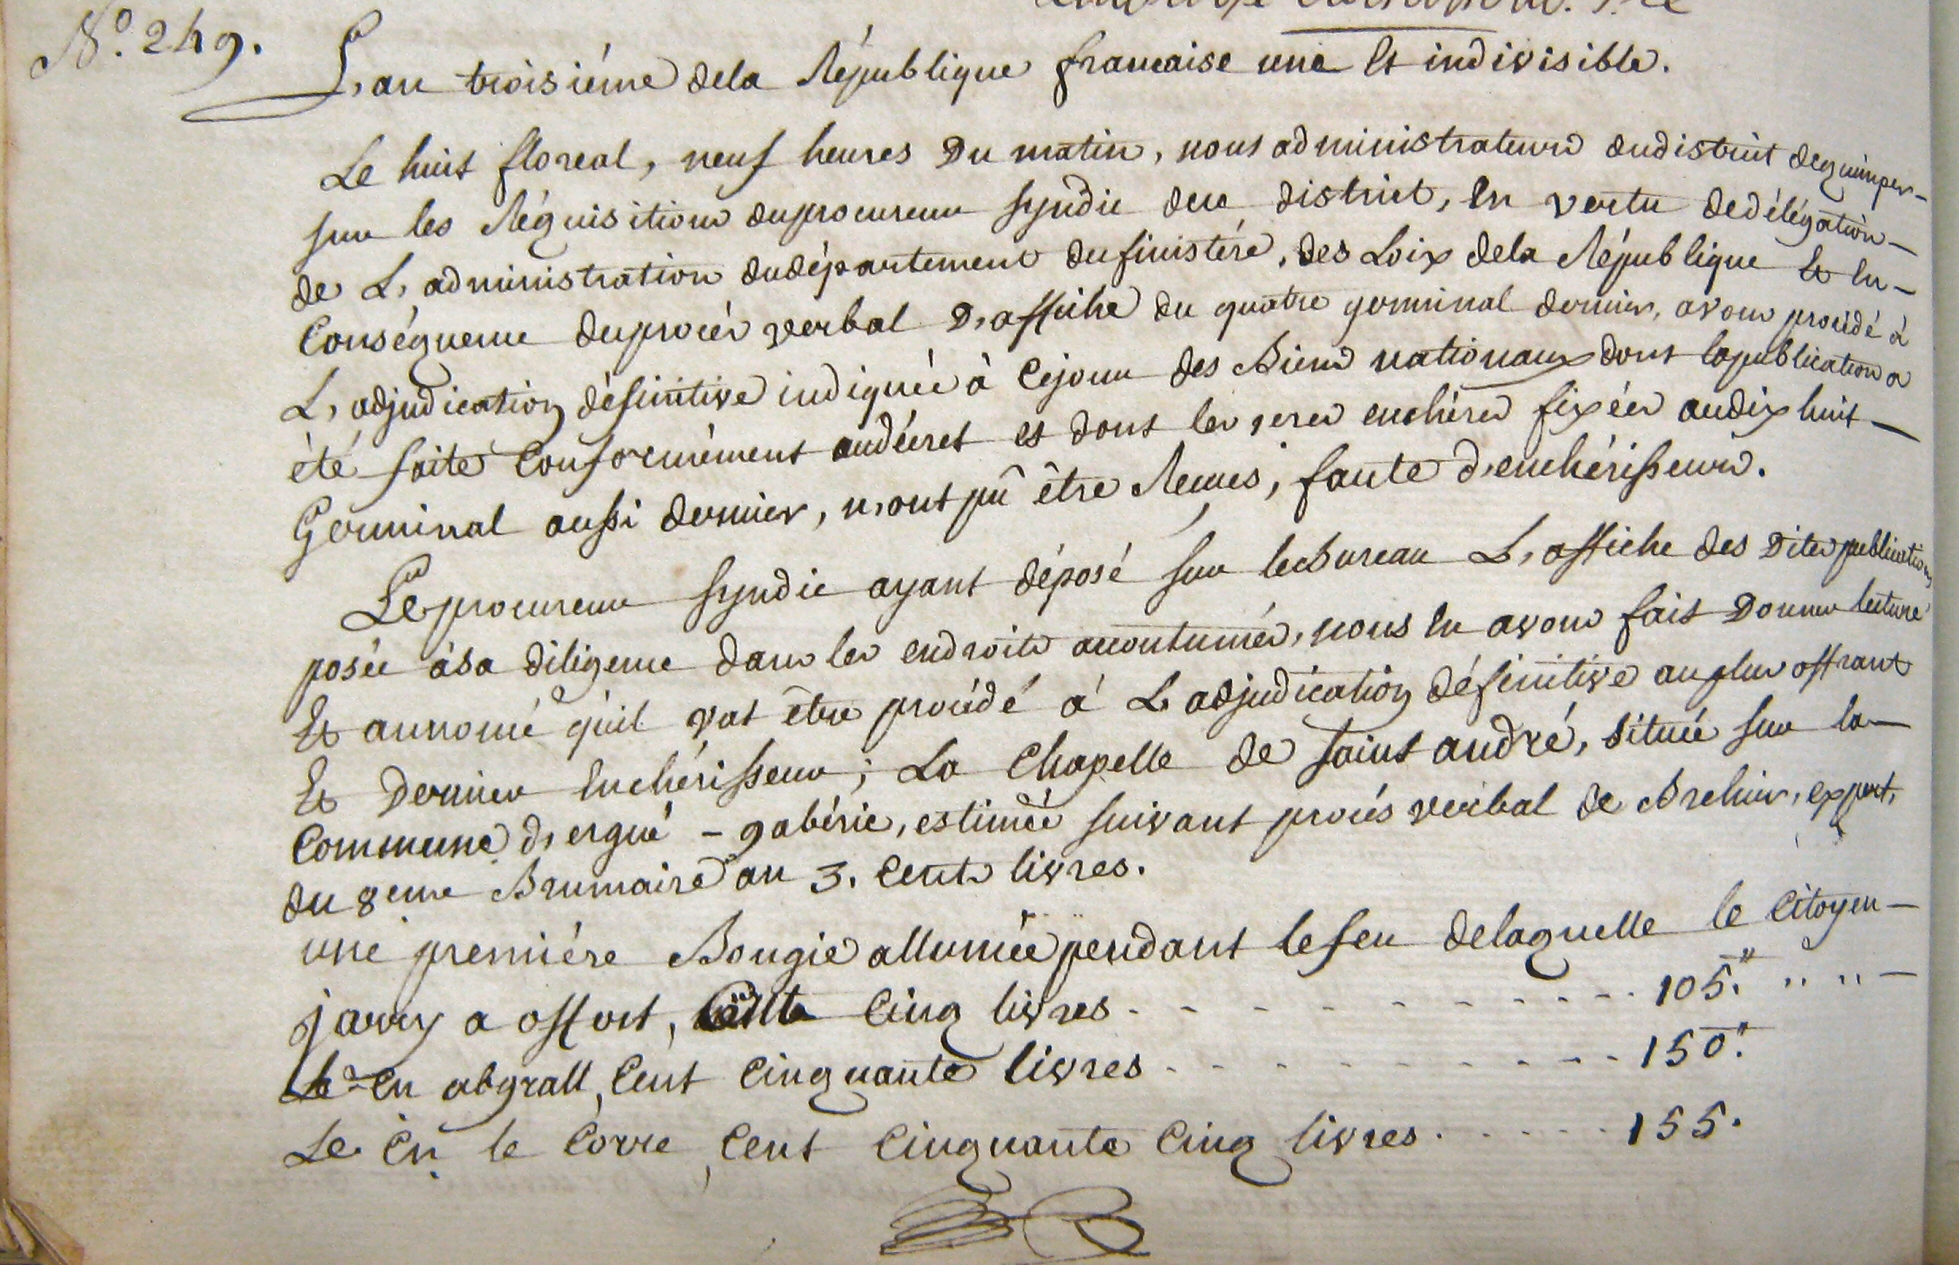 N.º 249.
L'an troisiéme dela République francaise une Et indivisible.
Le huit floreal, neuf heures Du matin, nous administrateurs dudistrict dequimper –
sur les Réquisitions duprocureur syndic dece district, En vertu dedélégation –
de L'administration dudépartement dufinistére, des Loix dela République Et En –
Conséquence duprocés verbal D'affiche du quatre germinal dernier, avons procédé à
L'adjudication définitive indiquée à Cejour des Biens nationaux dont lapublication a
été faite Conformément audécret et dont les 1eres enchéres fixées audix huit –
Germinal aussi dernier, n'ont pû être Recues, faute d'enchérisseurs.
Leprocureur syndic ayant déposé sur leBureau L'affiche des Dites publications
posée àsa diligence dans les endroits accoutumés, nous En avons fait Donner lecture
Et annoncé qu'il vat être procédé à L'adjudication définitive auplus offrant
Et Dernier Enchérisseur ; La Chapelle de saint andré, située sur la –
Commune d'ergué – gabéric, estimée suivant procés verbal de Brelivet, expert,
du 8eme Brumaire an 3. Cents livres.
une premiére Bougie allumée pendant lefeu delaquelle le Citoyen –
jarry a offert, Cent Cinq livres - - - - - - - - - - - - 105.″ ″ ″ –
Le Cn abgrall, Cent Cinquante livres - - - - - - - - - - 150.″
Le Cn le Corre, Cent Cinquante Cinq livres - - - - - - 155.